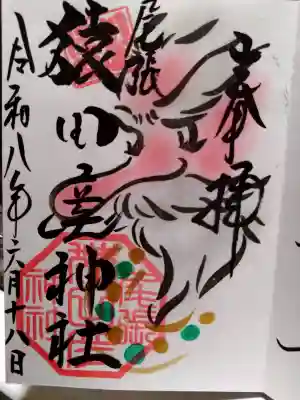 奉拝
尾張
猿田彦神社
令和八年六月十八日